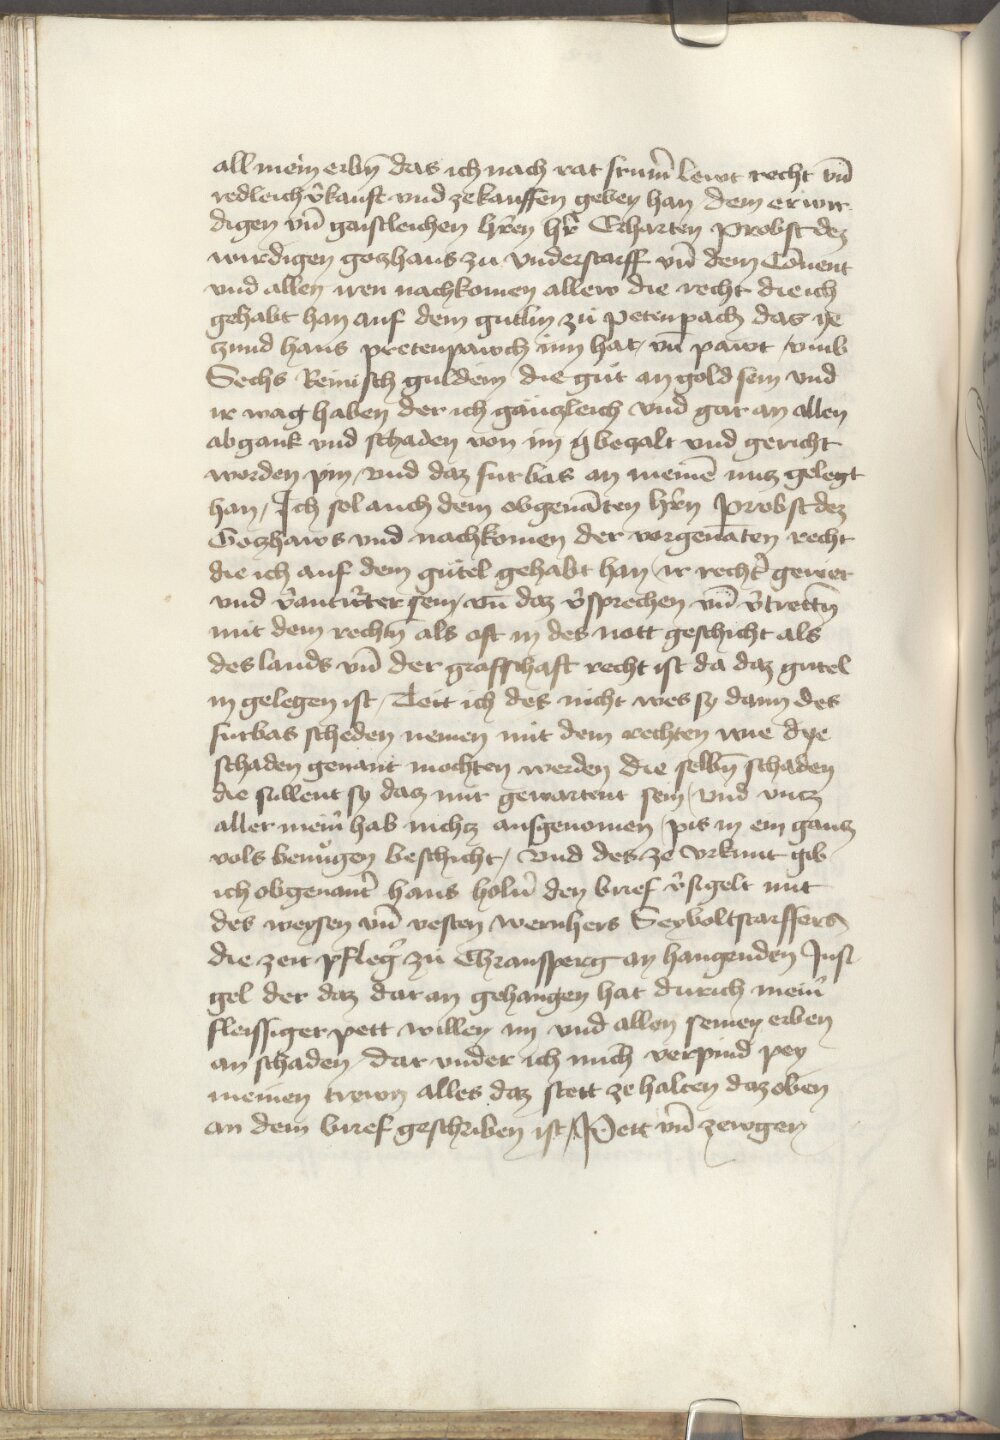 all mein erbn̄ das ich nach rat frum̄ lewt recht vn̄
redleich v̉kauft vnd ze kauffen geben han dem erwir
digen vn̄ geistleichen hr̄en hr̄ Erharten Probst dez
wirdigen gozhaus zu vnderstarff vn̄ dem Cōuent
vnd allen iren nachkomen allew die recht die ich
gehabt han auf dem gutlin zu Petenpach das ye
zund hans pretenpawch inn hat / vn̄ pawt / vmb
Sechs Reinisch guldein die gut an gold sein vnd
ir wag haben der ich gänzleich vnd gar an allen
abgank vnd schaden von im bezalt vnd gericht
worden pin / vnd daz furbas an meinē nuz gelegt
han / Ich sol auch dem obgenāten hr̄n Probst dez
Gozhaws vnd nachkomen der vorgenāten recht
die ich auf dem gütel gehabt han ir recht̉ gewer
vnd v̉antw̉ter sein / vn̄ daz v̉sprechen vn̄ v̉trettn̄
mit dem rechtn̄ als oft in des nott geschicht als
des lands vn̄ der graffschaft recht ist da daz gutel
in gelegen ist / Tett ich des nicht wes sy dann des
furbas scheden nemen mit dem rechten wie dye
schaden genant mochten werden die selbn̄ schaden
die sullent sy daz mir gewartent sein / vnd vncz
aller mein̉ hab nichcz ausgenomen / pis in ein gantz
vols benügen beschicht / vnd des ze vrkunt gib
ich obgenant̉ hans holn̉ den brief v̉sigelt mit
des weysen vn̄ vesten wernhers Seyboltstarffers
die zeit pfleg̉ zu Chransperg an hangenden Insi
gel der daz dar an gehangen hat durich mein̉
fleissiger pett willen im vnd allen seinen erben
an schaden / dar vnder ich mich verpind pey
meinen trewn alles daz stett ze halten daz oben
an dem brief geschriben ist / Pett vn̄ zewgen